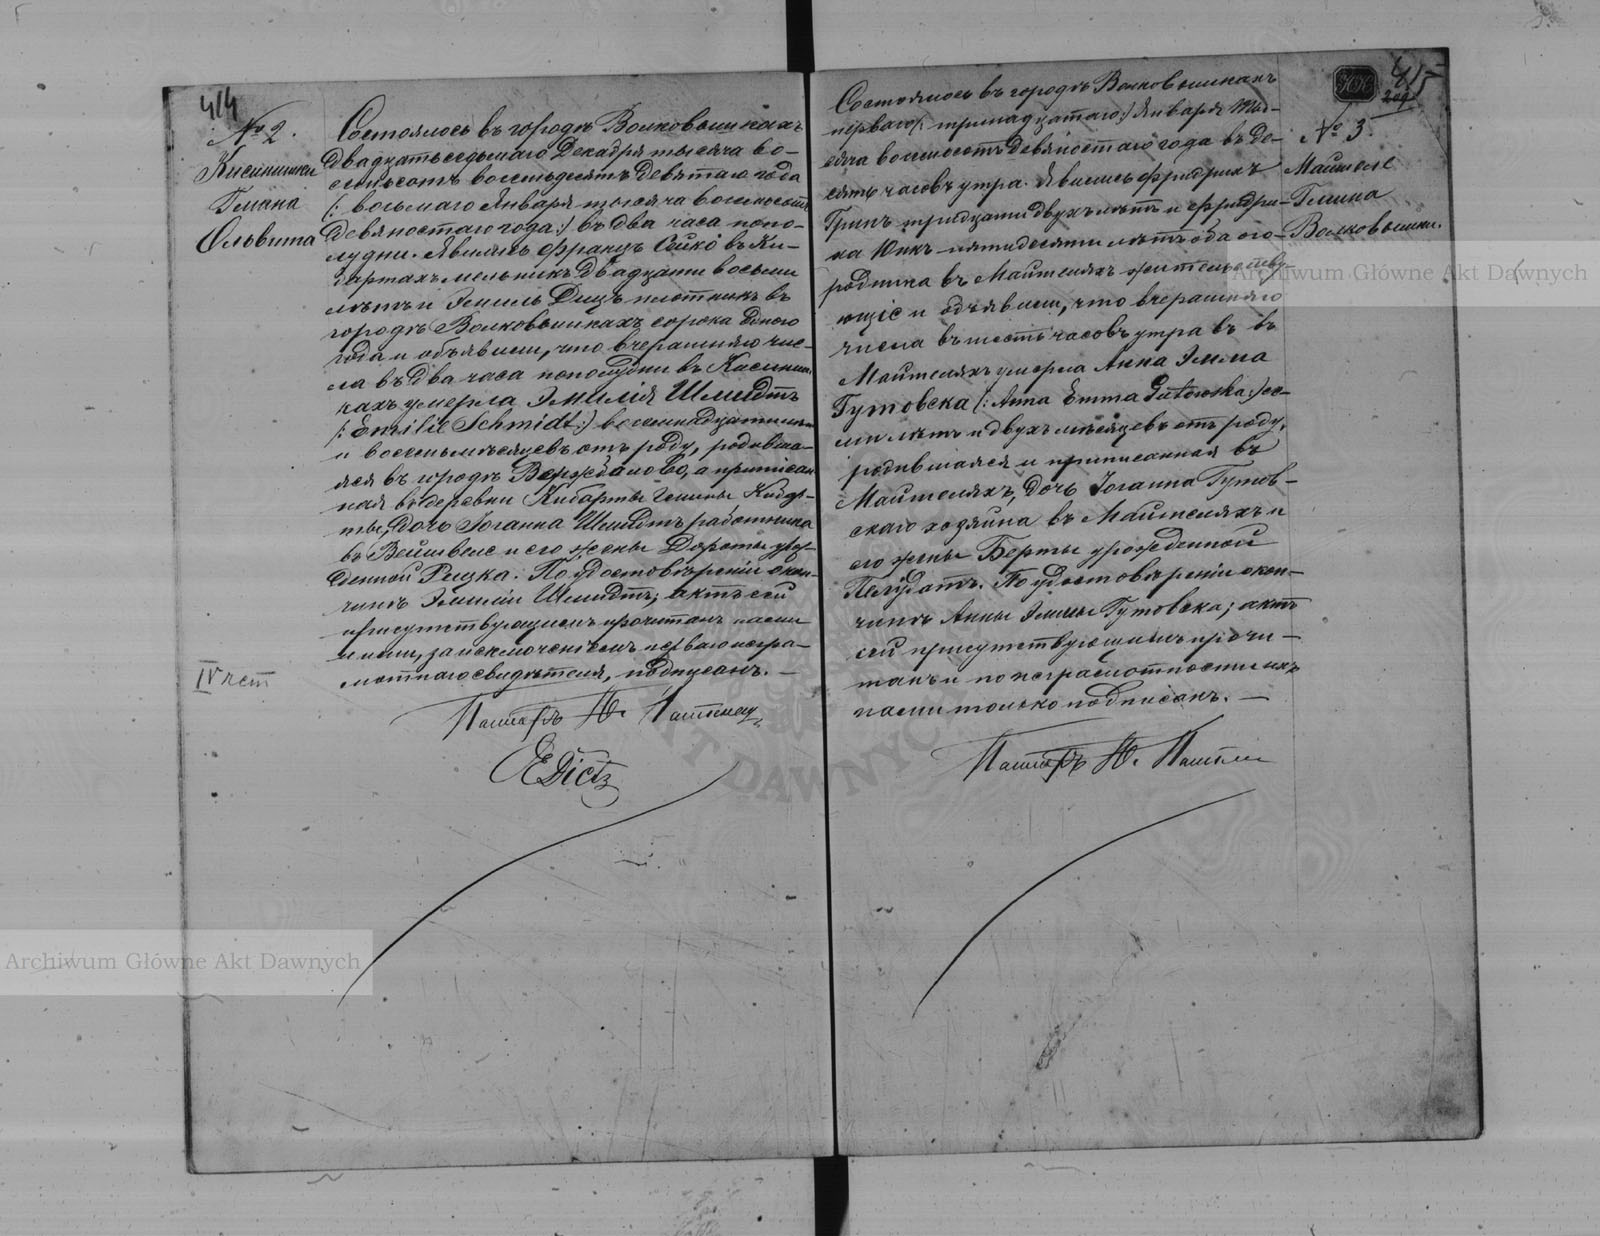 414
№ 2.
Кисинишки
Гмина
Ольвита
Состоялось въ городѣ Волковышкахъ
двадцать седьмаго Декабря тысяча во-
семьсотъ восемьдесятъ девятаго года
(: восьмаго Января тысяча восемьсотъ
девяностаго года:) въ два часа попо-
лудни. Явились Францъ Сейко въ Ки-
бартахъ мельникъ двадцати восьми
лѣтъ и Эмиль Дицъ плотникъ въ
городѣ Волковышкахъ сорока одного
года и объявили, что вчерашняго чис-
ла въ два часа пополудни въ Кисиниш-
кахъ умерла Эмилія Шмидтъ
(: Emilie Schmidt:) восемнадцати лѣтъ
и восемь мѣсяцевъ отъ роду, родивша-
яся въ городѣ Вержболово, а приписан-
ная въ деревни Кибарты Гмины Кибар-
ты, дочь Іоганна Шмидтъ работника
въ Вейшвеле и его жены Дороты урож-
денной Рецка. По удостовѣреніи о кон-
чинѣ Эмиліи Шмидтъ, актъ сей
присутствующимъ прочитанъ нами
и ними, за исключеніемъ перваго негра-
мотнаго свидѣтеля, подписанъ. —
IV
Пасторъ
EDietz
415
209
№ 3.
Майтеле
Гмина
Волковышки.
Состоялось въ городѣ Волковышкахъ
перваго (: тринадцатаго:) Января тыс-
сяча восемьсотъ девяностаго года въ де-
сять часовъ утра. Явились Фридрихъ
Гринъ тридцати двухъ лѣтъ и Фридри-
ха Юнкъ пятидесяти лѣтъ оба ого-
родника въ Майтеляхъ жительству-
ющіе и объявили, что вчерашняго
числа въ шесть часовъ утра въ въ
Майтеляхъ умерла Анна Эмма
Гутовска (: Anna Emma Gutowska:) се-
ми лѣтъ и двухъ мѣсяцевъ отъ роду,
родившаяся и приписанная въ
Майтеляхъ, дочь Іоганна Гутов-
скаго хозяина въ Майтеляхъ и
его жены Берты урожденной
Пелудатъ. По удостовѣреніи о кон-
чинѣ Анны Эммы Гутовска; актъ
сей присутствующимъ прочи-
танъ и по неграмотности ихъ
нами только подписанъ. —
Пасторъ
Archiwum Główne Akt Dawnych
Archiwum Główne Akt Dawnych
AKT DAWNYCH